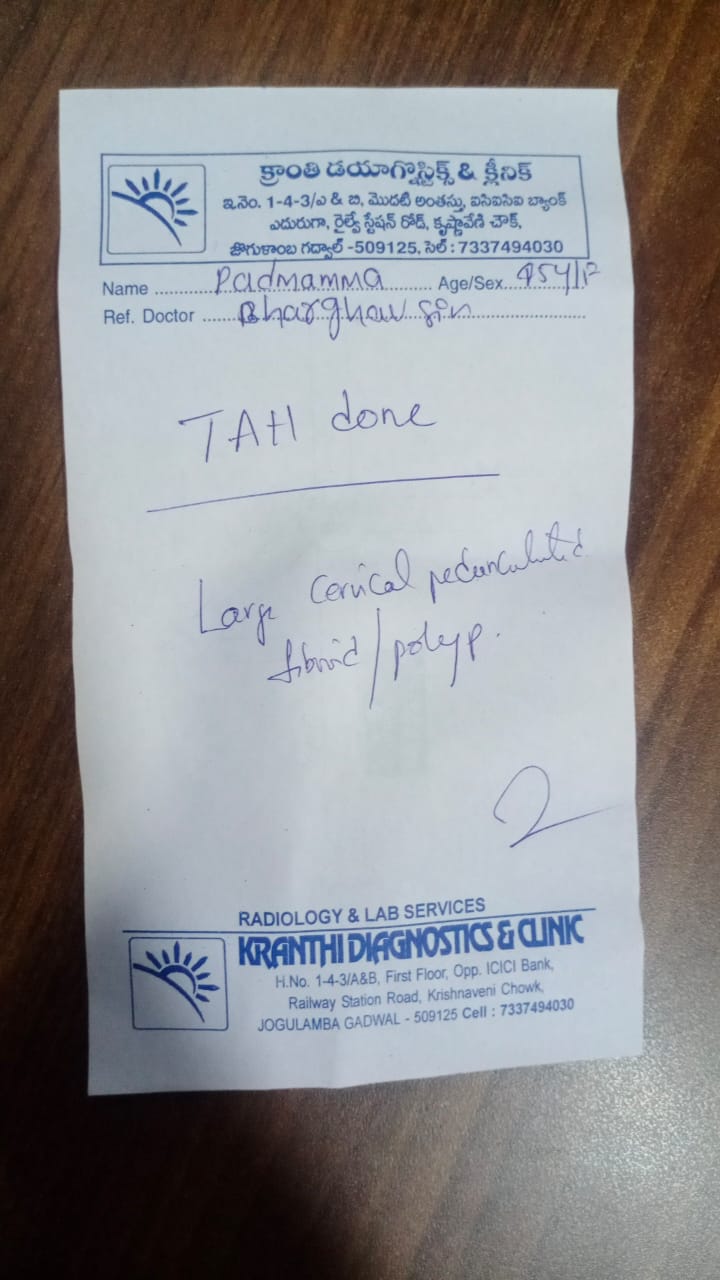 క్రాంతి డయాగ్నొస్టిక్స్ & క్లీనిక్
ఇ.నెం. 1-4-3/ఎ & బి, మొదటి అంతస్తు, ఐసిఐసిఐ బ్యాంక్
ఎదురుగా, రైల్వే స్టేషన్ రోడ్, కృష్ణావేణి చౌక్,
జొగుళాంబ గద్వాల్ -509125, సెల్ : 7337494030
Name Padmamma Age/Sex
Ref. Doctor Bharghav Sir
TAH done
Large cervical pedunculated
fibroid/polyp.
RADIOLOGY & LAB SERVICES
KRANTHI DIAGNOSTICS & CLINIC
H.No. 1-4-3/A&B, First Floor, Opp. ICICI Bank,
Railway Station Road, Krishnaveni Chowk,
JOGULAMBA GADWAL - 509125 Cell : 7337494030